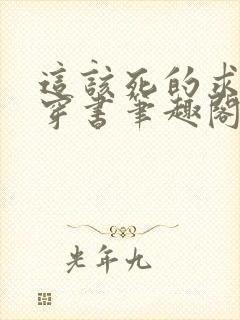 這該死的求
穿書筆趣閣
光年九